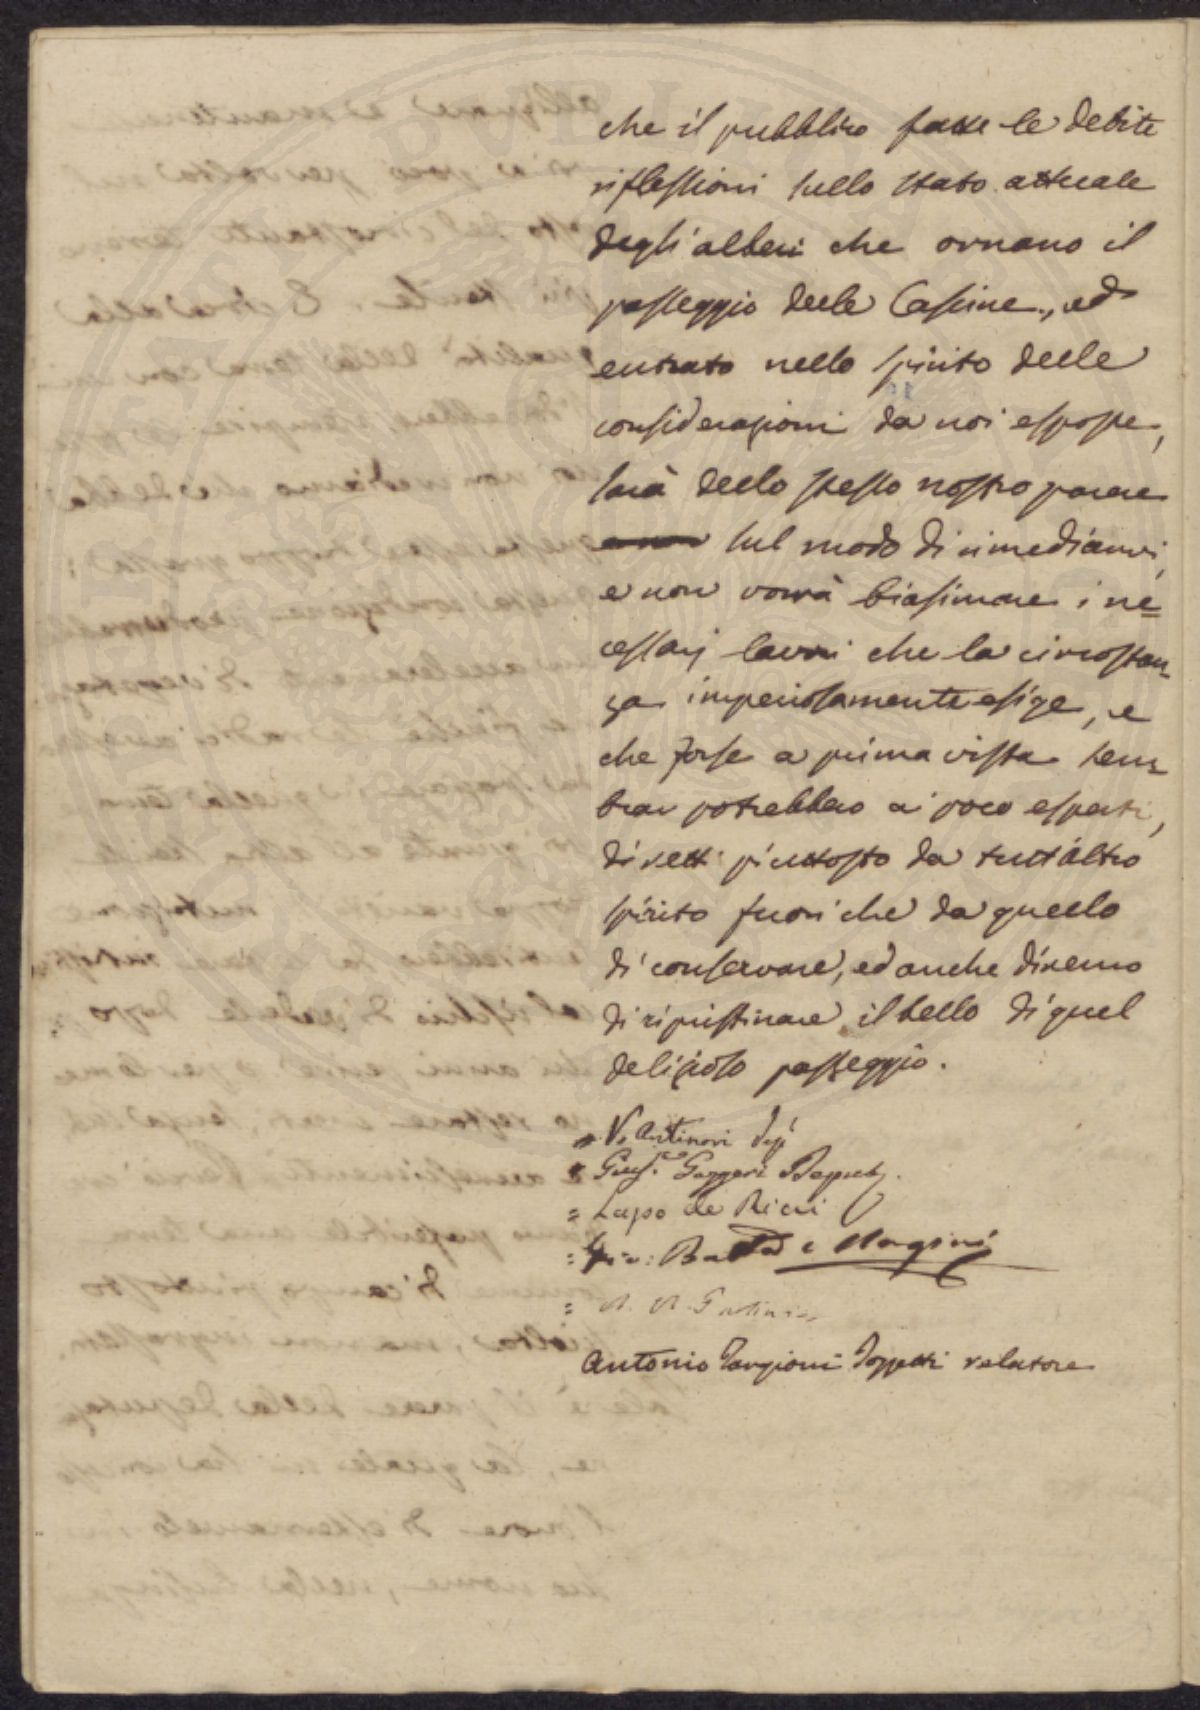 che il pubblico fatte le debite
riflessioni sullo stato attuale
degli alberi che ornano il
passeggio delle Cascine, ed
entrato nello spirito delle
considerazioni da noi esposte,
sarà dello stesso nostro parere
sul modo di rimediarvi,
e non vorrà biasimare i ne=
cessarj lavori che la circostan=
za imperiosamente esige, e
che forse a prima vista sem=
brar potrebbero a' poco esperti,
diretti piuttosto da tutt'altro
spirito fuori che da quello
di conservare, ed anche diremo
di ripristinare il bello di quel
delizioso passeggio.
= V. Antinori Dep.
= Gius. Gazzeri Deput.
= Lapo de Ricci
= Gio: Batta
=
Antonio Targioni Tozzetti relatore